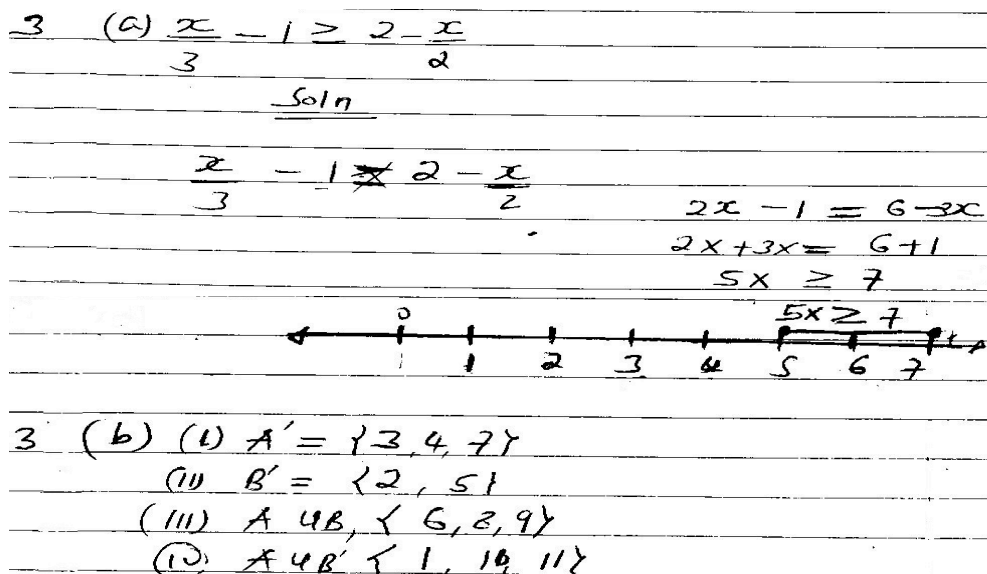 3 (a) x/3 - 1 ≥ 2 - x/2
Soln
x/3 - 1 ≥ 2 - x/2
2x - 1 = 6 - 3x
2x + 3x = 6 + 1
5x ≥ 7
5x ≥ 7
0 1 2 3 4 5 6 7
3 (b) (i) A' = {3, 4, 7}
(ii) B' = {2, 5}
(iii) A UB, { 6, 8, 9}
(iv) A UB' { 1, 10, 11}